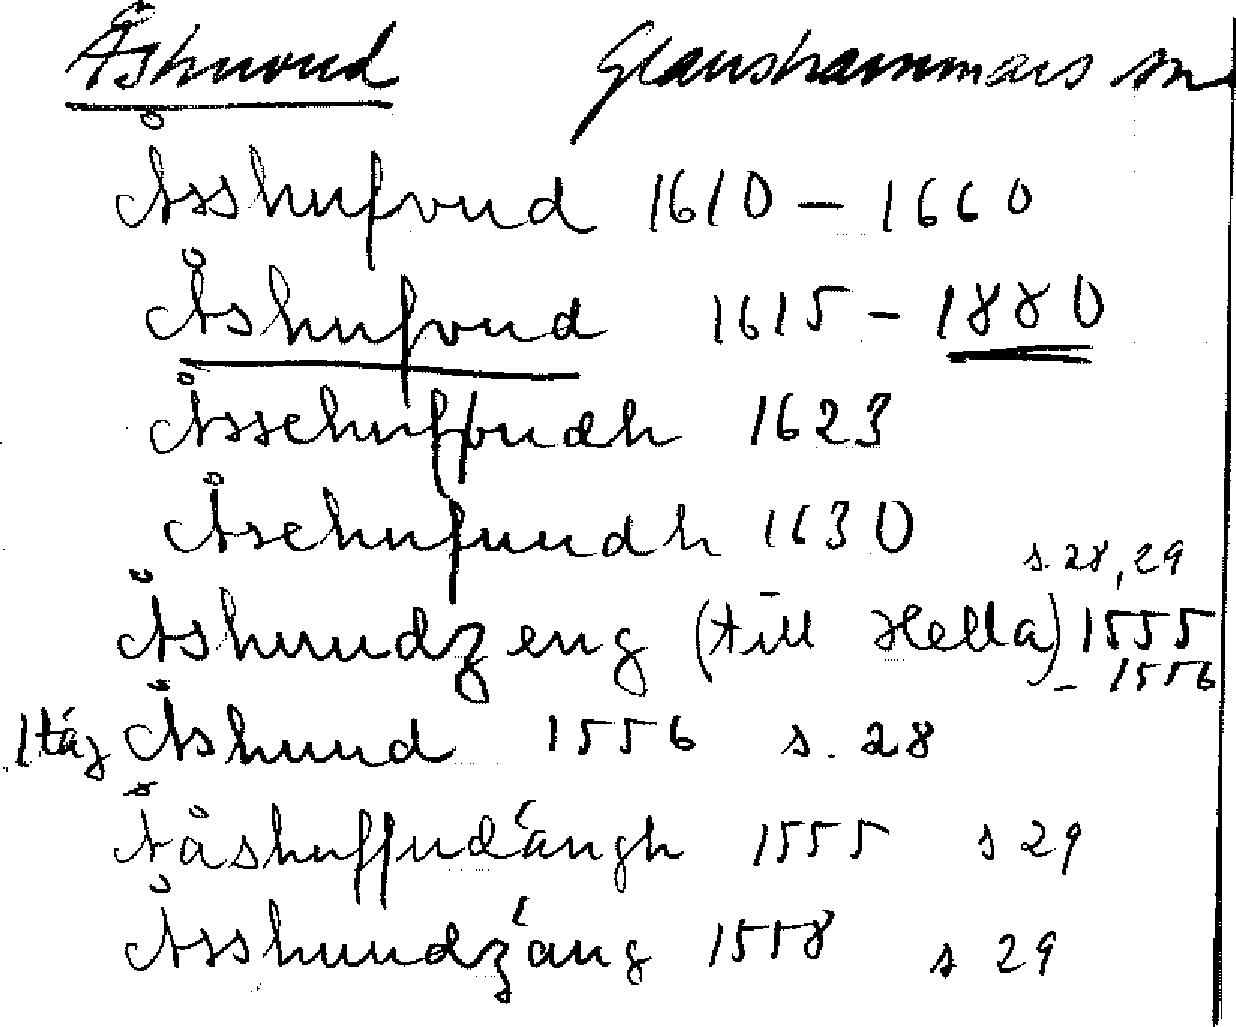 Åshuvud Glanshammars sn
Åsshufvud 1610 – 1660
Åshufvud 1615 – 1880
Åsschuffvudh 1623
Åschufuudh 1630
s. 28, 29
Åshuudzeng (till Hella) 1555
– 1556
1 täg Åshuud 1556 s. 28
Ååshuffudängh 1555 s 29
Åsshuudzäng 1558 s 29